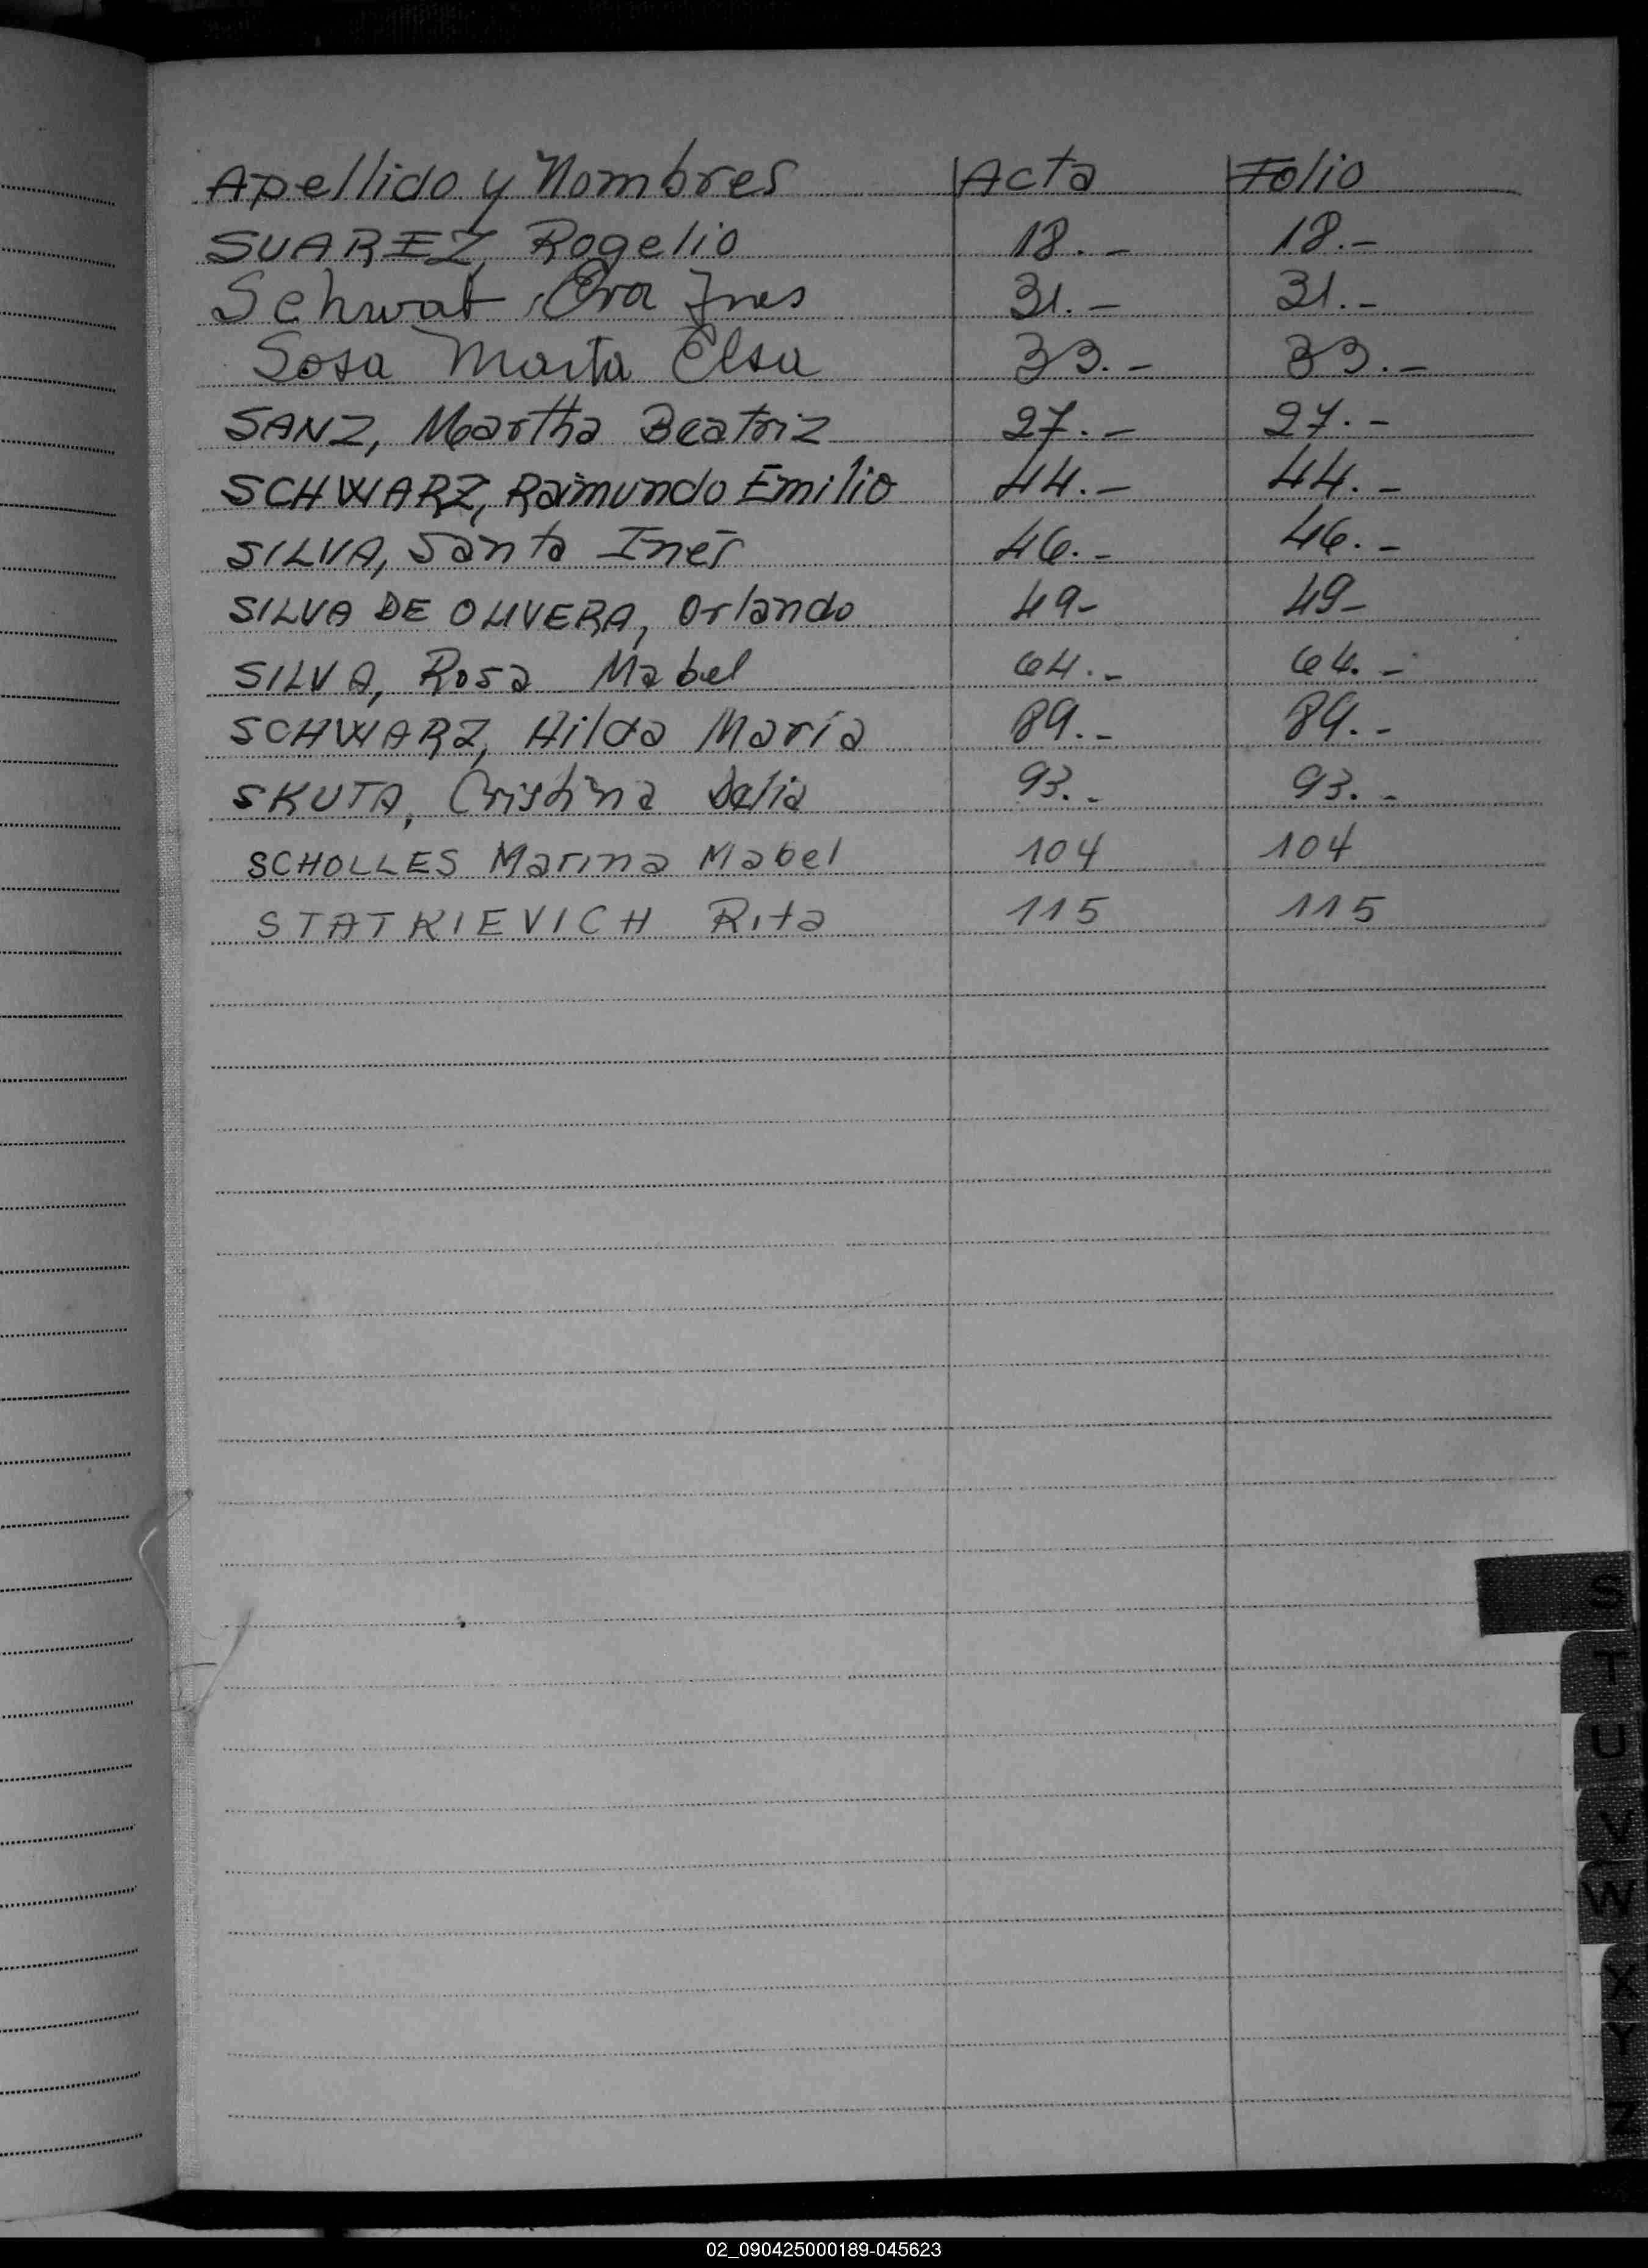 Apellido y Nombres Acta Folio
SUAREZ, Rogelio 18.- 18.-
Schwat, Eva Ines 31.- 31.-
Sosa Marta Elsa 33.- 33.-
SANZ, Martha Beatriz 27.- 27.-
SCHWARZ, Raimundo Emilio 44.- 44.-
SILVA, Santa Inés 46.- 46.-
SILVA DE OLIVERA, Orlando 49- 49-
SILVA, Rosa Mabel 64.- 64.-
SCHWARZ, Hilda María 89.- 89.-
SKUTA, Cristina Delia 93.- 93.-
SCHOLLES Marina Mabel 104 104
STATKIEVICH Rita 115 115
S
T
U
V
W
X
Y
Z
02_090425000189-045623